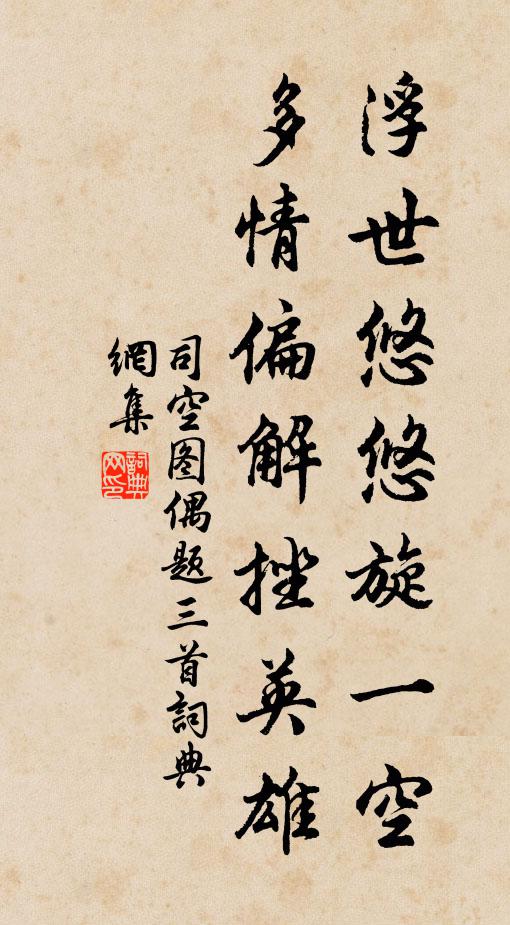 浮世悠悠旋一空
多情偏解挫英雄
司空图偶题三首詞典
網集
詞典网印